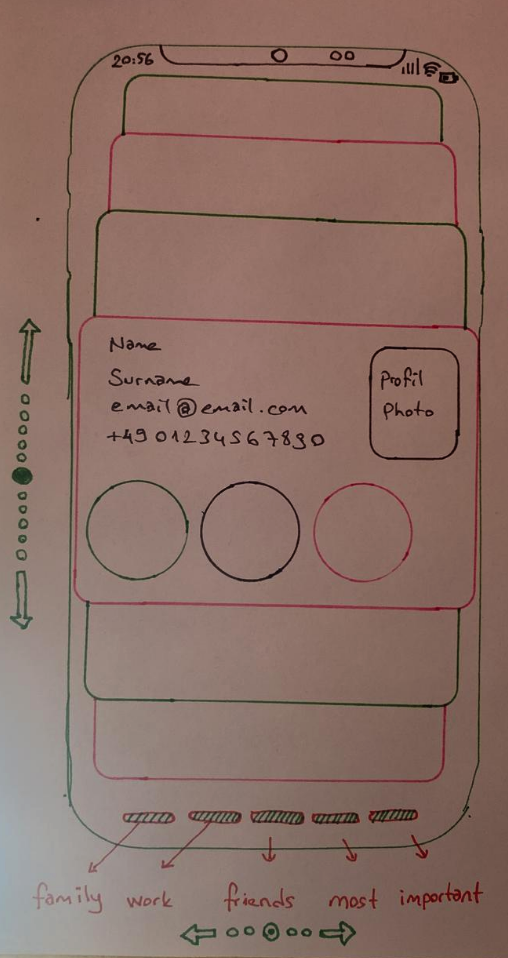 20:56
Name
Surname
email@email.com
+49 01234567890
Profil
Photo
family work friends most important